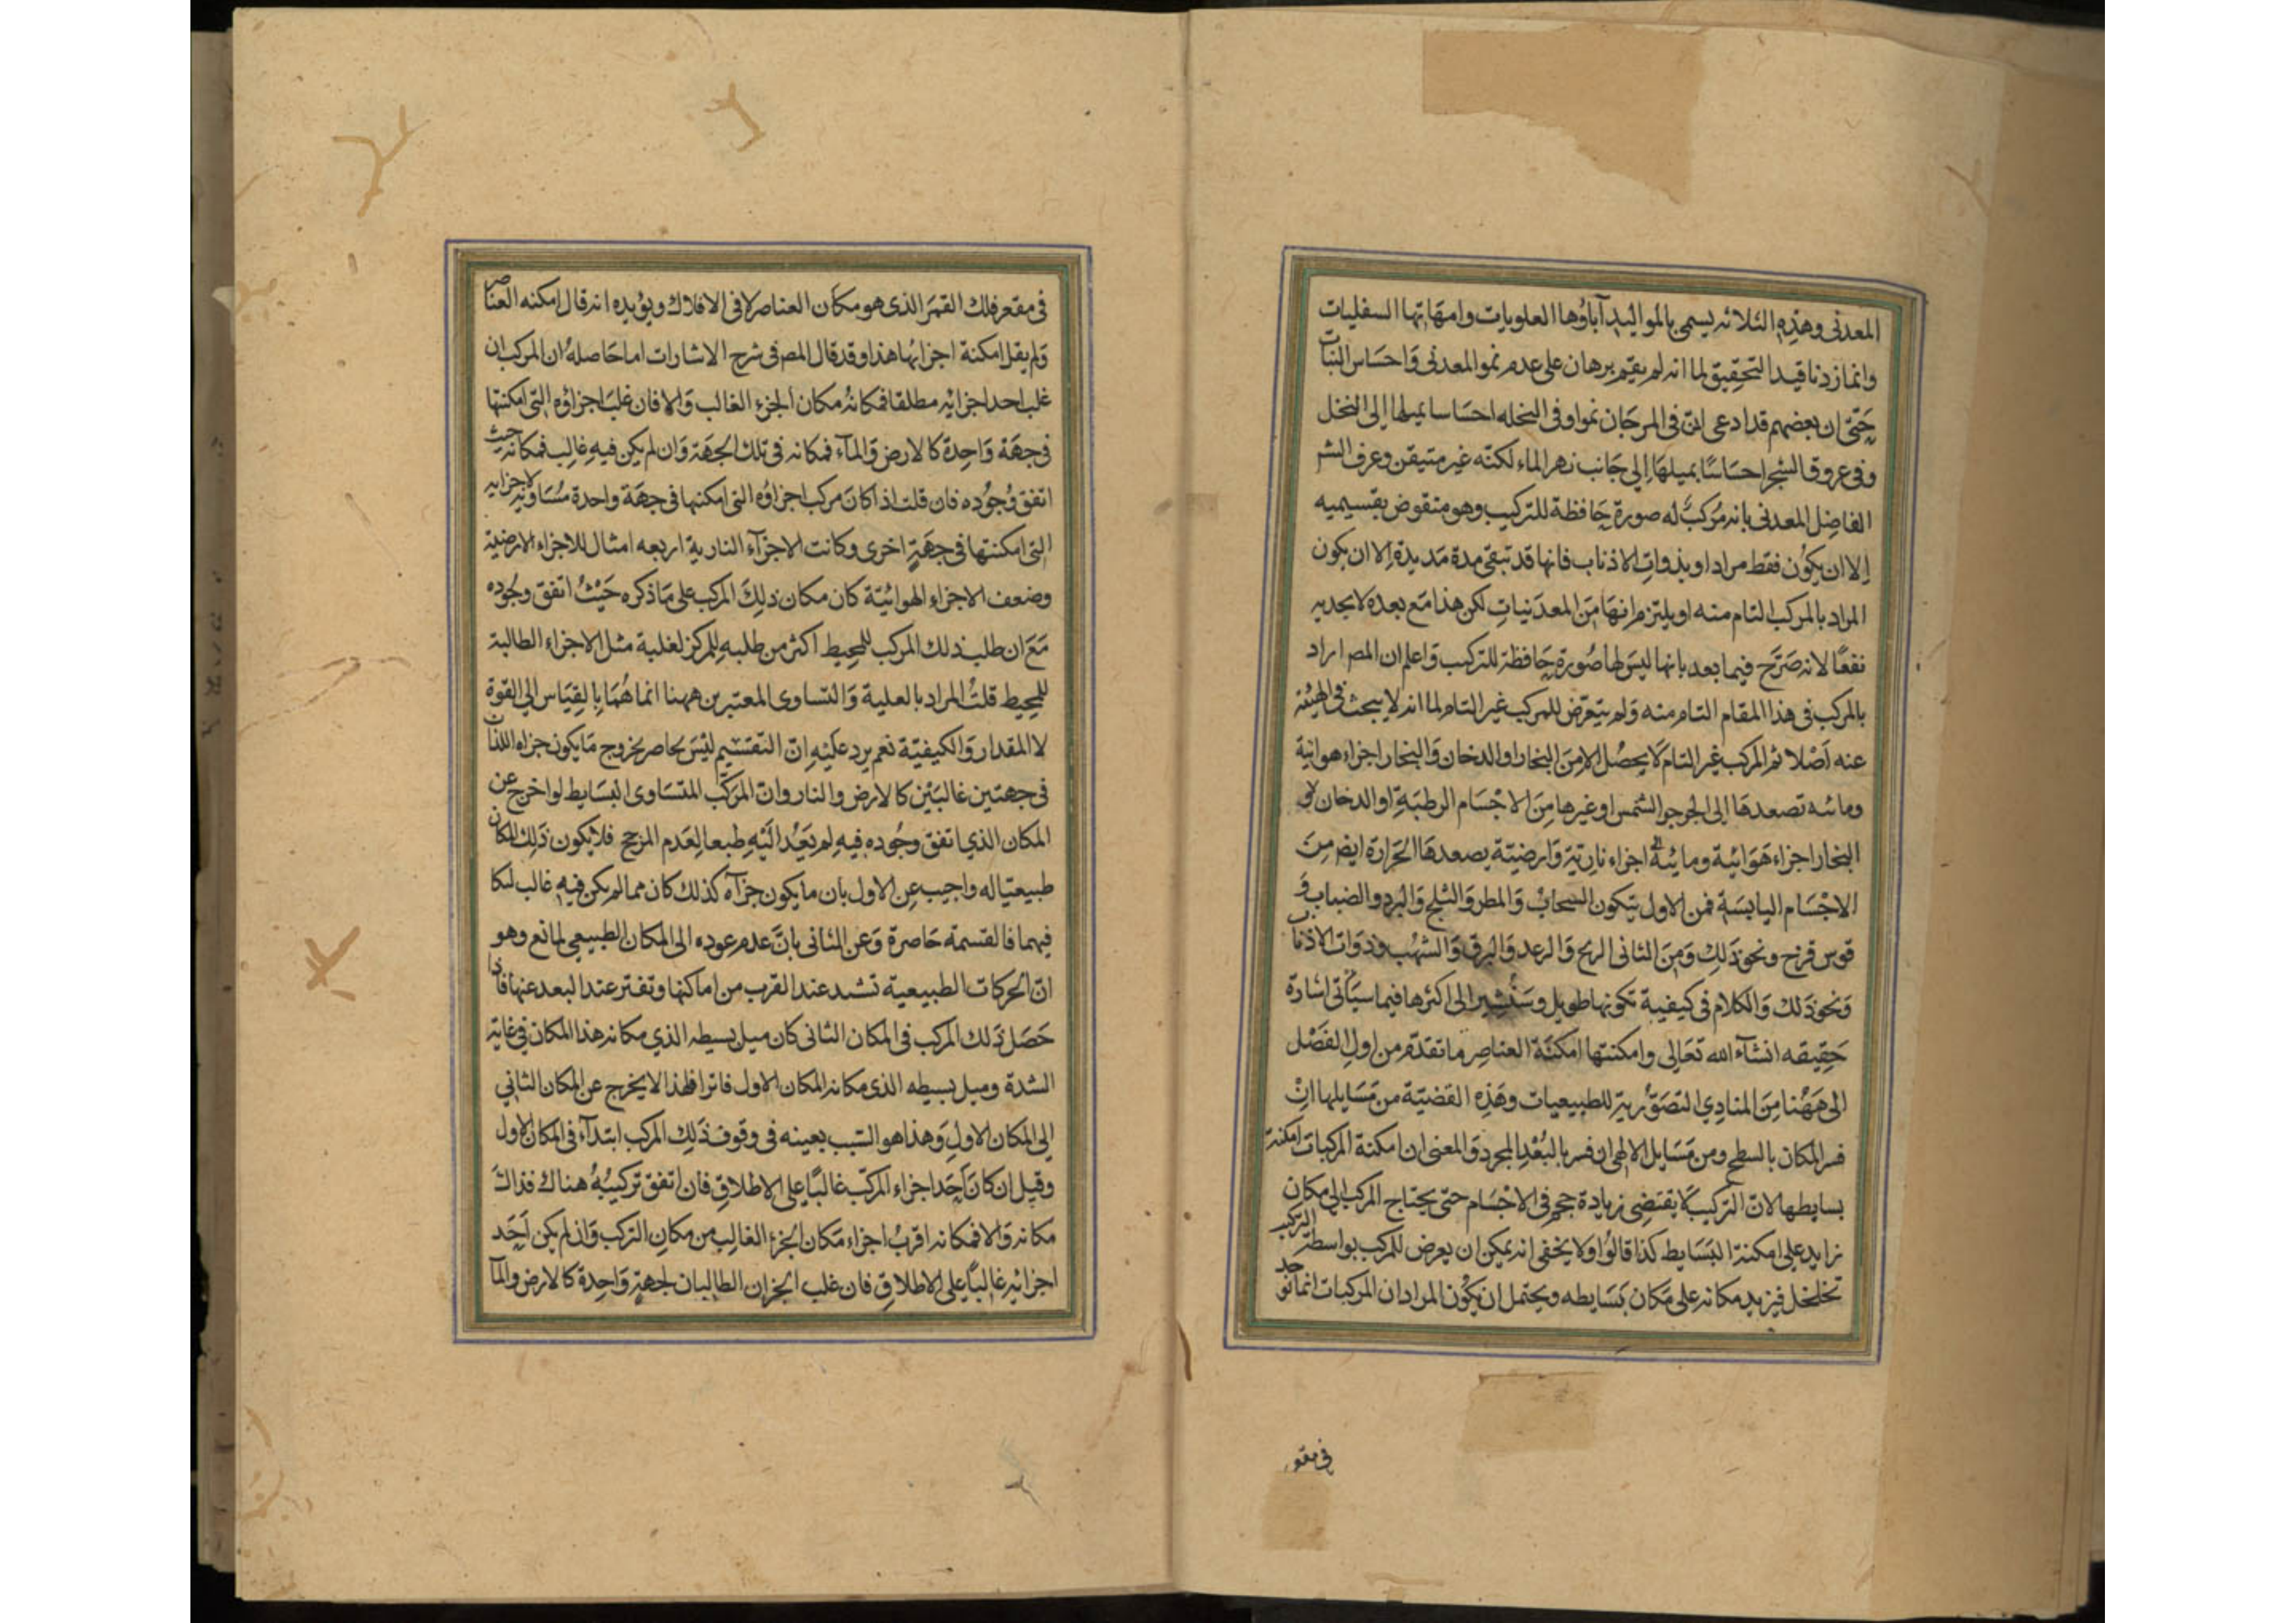 المعدنى وهذه الثلاثه يسمى بالمواليد آباؤها العلويات وامهاتها السفليات
وانما زدنا قيد التحقيق لما انه لم يقم برهان على عدم نمو المعدنى واحساس النبات
حتى ان بعضهم قد ادعى ان فى المرجان نموا وفى النخله احساسا يميلها الى النخل
وفى عروق الشجر احساسًا يميلها الى جانب نهر الماء لكنه غير متيقن وعرف الشر
الفاضل المعدنى بانه مركب له صورة حافظة للتركيب وهو منقوض بقسيميه
الا ان يكون فقط مرادا وبذوات الاذناب فانها قد تبقى مدة مديدة الا ان يكون
المراد بالمركب التام منه او يلتزم انها من المعدنيات لكن هذا مع بعده لا يجديه
نفعًا لانه صرح فيما بعد بانها ليس لها صورة حافظة للتركيب واعلم ان المص اراد
بالمركب فى هذا المقام التام منه ولم يتعرض للمركب غير التام لما انه لا يبحث فى الهيئه
عنه اصلا ثم المركب غير التام لا يحصل الا من البخار او الدخان والبخار اجزاء هوائية
ومائيه تصعدها الى الجو حر الشمس او غيرها من الاجسام الرطبة او الدخان لو
البخار اجزاء هوائية ومائية اجزاء نارية وارضية يصعدها الحرارة ايض من
الاجسام اليابسة فمن الاول يتكون السحاب والمطر والثلج والبرد والضباب و
قوس قزح ونحو ذلك ومن الثانى الريح والرعد والبرق والشهب وذوات الاذناب
ونحو ذلك والكلام فى كيفية تكونها طويل وسنشير الى اكثرها فيما سيأتى اشارة
حقيقه انشآء الله تعالى وامكنتها امكنة العناصر ما تقدم من اول الفصل
الى ههنا من المبادى التصورية للطبيعيات وهذه القضية من مسايلها ان
فسر المكان بالسطح ومن مسايل الالهى ان فسر بالبعد المجرد والمعنى ان امكنة المركبات امكنة
بسايطها لان التركيب لا يقتضى زيادة حجم فى الاجسام حتى يحتاج المركب الى مكان
زايد على امكنة البسايط كذا قالوا ولا يخفى انه يمكن ان يعرض للمركب بواسطة التركيب
تخلخل فيزيد مكانه على مكان بسايطه ويحتمل ان يكون المراد ان المركبات انما توجد
فى مقعر
فى مقعر فلك القمر الذى هو مكان العناصر لا فى الافلاك ويؤيده انه قال امكنه العناصر
ولم يقل امكنة اجزائها هذا وقد قال المص فى شرح الاشارات اما حاصله ان المركب ان
غلب احد اجزائه مطلقا فمكانه مكان الجزء الغالب والا فان غلب اجزاؤه التى امكنتها
فى جهة واحدة كالارض والمآء فمكانه فى تلك الجهة وان لم يكن فيه غالب فمكانه حيث
اتفق وجوده فان قلت اذا كان مركب اجزاؤه التى امكنها فى جهة واحدة مساوية لاجزايه
التى امكنتها فى جهة اخرى وكانت الاجزآء النارية اربعه امثال للاجزاء الارضية
وضعف الاجزاء الهوائية كان مكان ذلك المركب على ما ذكره حيث اتفق وجوده
مع ان طلب ذلك المركب للمحيط اكثر من طلبه للمركز لغلبة مثل الاجزاء الطالبة
للمحيط قلت المراد بالعلية والتساوى المعتبرين ههنا انما هما بالقياس الى القوة
لا المقدار والكيفية نعم يرد عليه ان التقسيم ليس بحاصر بخروج ما يكون جزاه اللذان
فى جهتين غالبين كالارض والنار وان المركب المتساوى البسايط لو اخرج عن
المكان الذي اتفق وجوده فيه لم يعد اليه طبعا لعدم المرجح فلا يكون ذلك المكان
طبيعتيا له واجيب عن الاول بان ما يكون جزآه كذلك كان مما لم يكن فيه غالب لتكا
فيهما فالقسمة حاصرة وعن الثانى بان عدم عوده الى المكان الطبيعي لمانع وهو
ان الحركات الطبيعية تشد عند القرب من اماكنها وتفتر عند البعد عنها فاذا
حصل ذلك المركب فى المكان الثانى كان ميل بسيطه الذي مكانه هذا المكان فى غاية
الشدة وميل بسيطه الذى مكانه المكان الاول فاترا فلهذا لا يخرج عن المكان الثاني
الى المكان الاول وهذا هو السبب بعينه فى وقوف ذلك المركب ابتدآء فى المكان الاول
وقيل ان كان احد اجزاء المركب غالبًا على الاطلاق فان اتفق تركيبه هناك فذاك
مكانه والا فمكانه اقرب اجزاء مكان الجزء الغالب من مكان التركب وان لم يكن احد
اجزائه غالبًا على الاطلاق فان غلب الجزان الطالبان لجهة واحدة كالارض والمآ